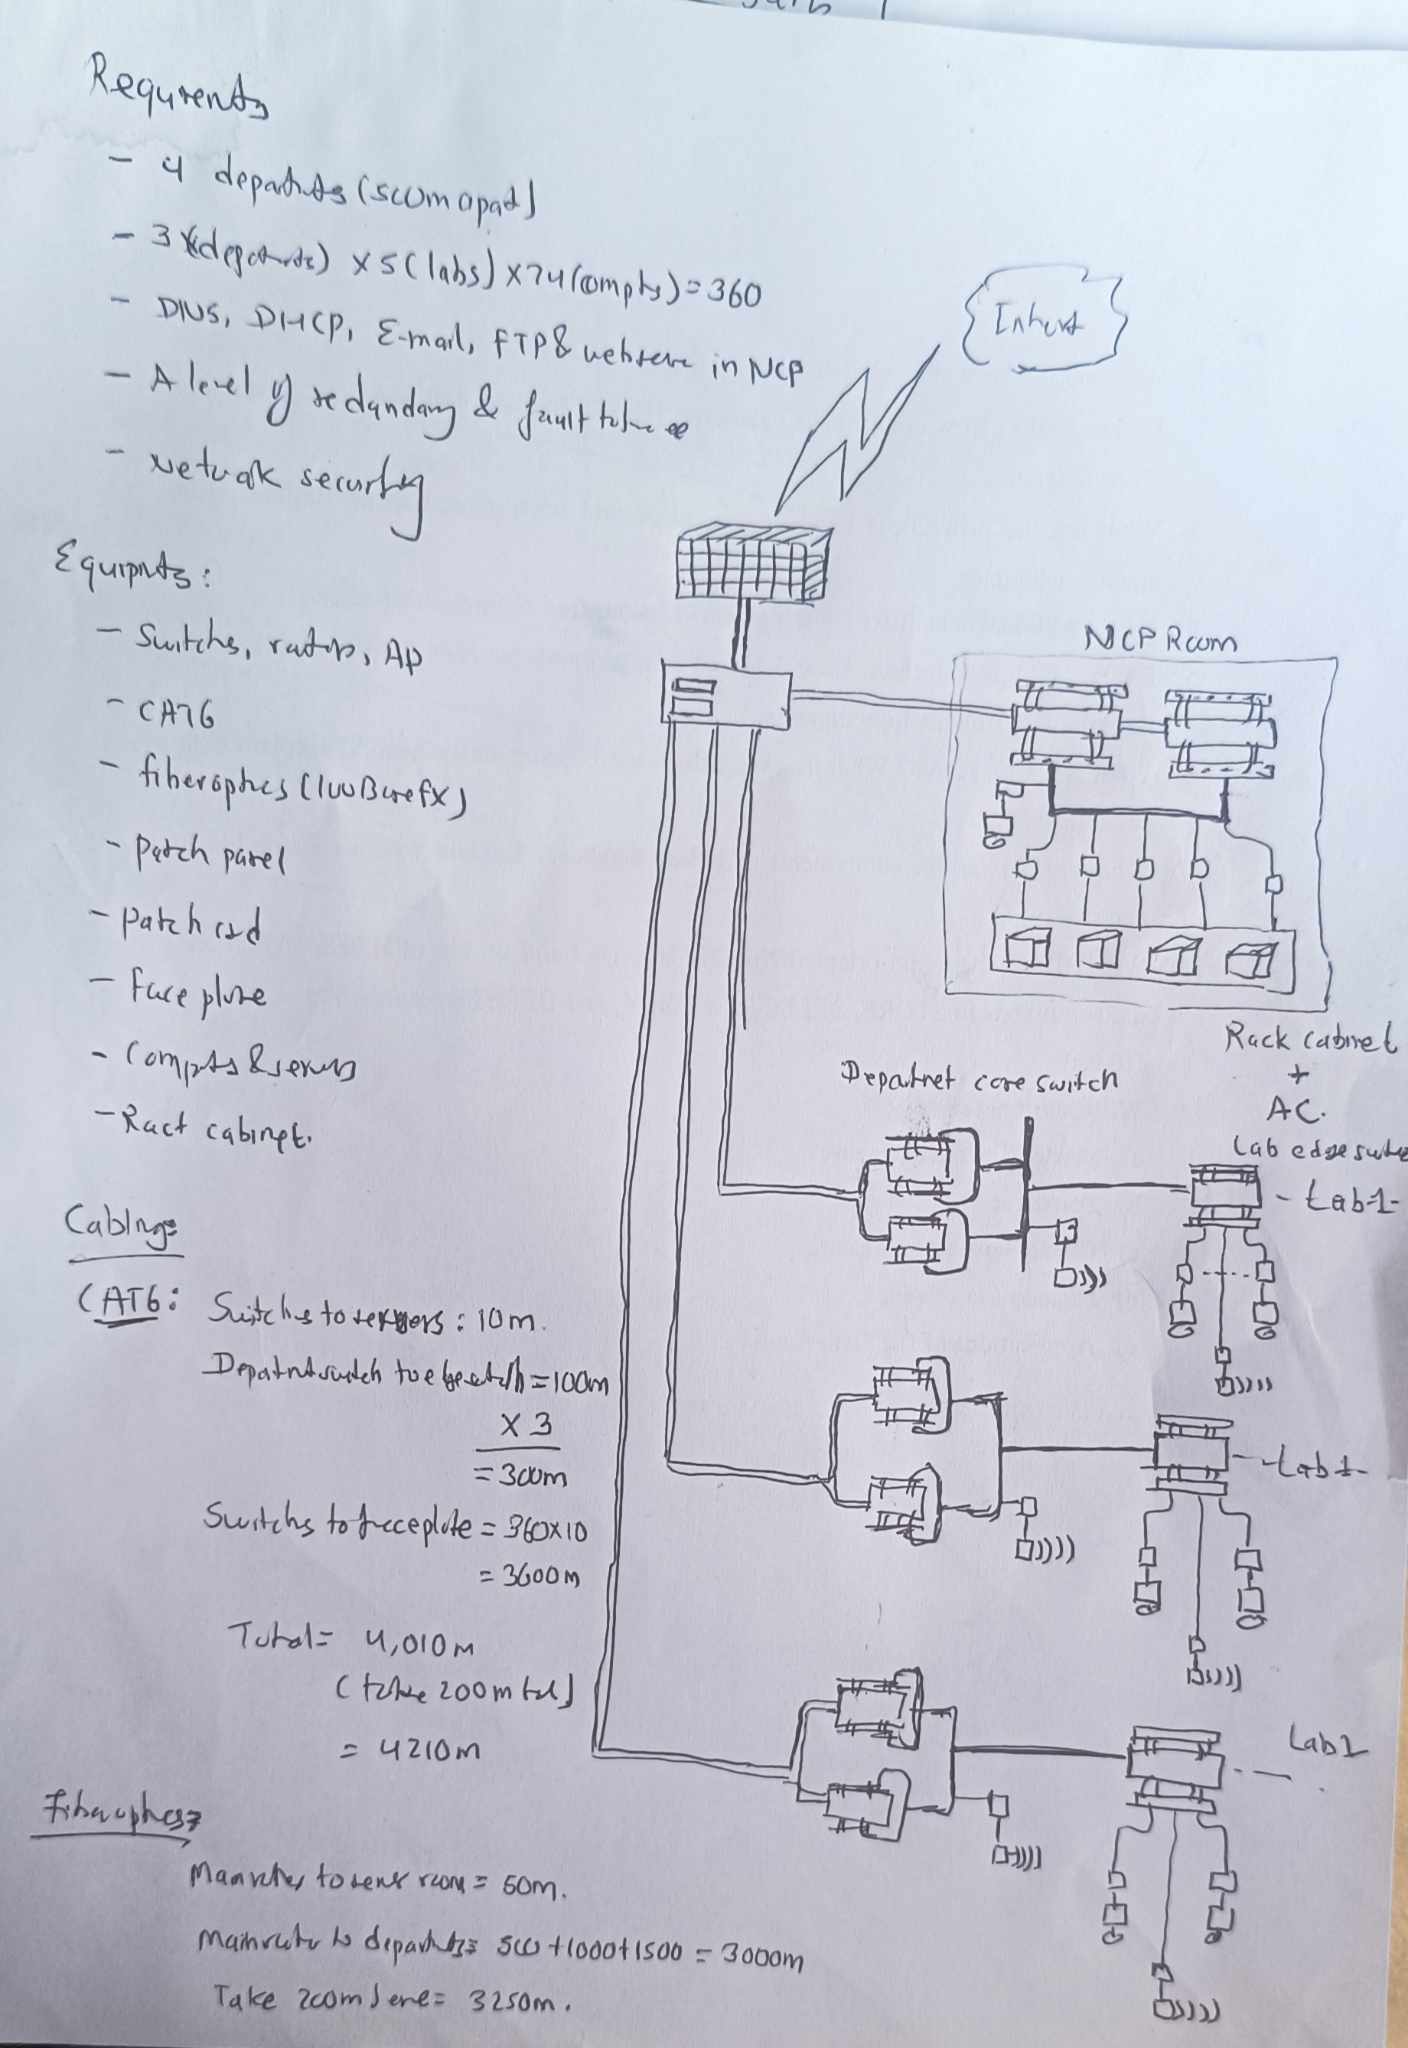 Requrents
- 4 departnts (500m apart)
- 3 (departnts) x 5 (labs) x 24 (compts) = 360
- DNS, DHCP, E-mail, FTP & webserve in NCP
- A level of redundancy & fault
- Network security
Equipnts:
- Switchs, , AP
- CAT6
- fiberoptics (100BaseFX)
- patch panel
- patch cord
- Face plate
- Compts & servers
- Ract cabinet.
Cabling:
CAT6: Switches to servers: 10m.
Depatnt switch to = 100m
x 3
= 300m
Switchs to faceplate = 360x10
= 3600m
Total = 4,010m
(take 200m tol)
= 4210m
Fiberoptics:
to room = 50m.
Mainrouter to departnts = 500 + 1000 + 1500 = 3000m
Take 200m = 3250m.
Internet
NCP Room
Rack cabinet
+
AC.
Depatnet core switch
Lab edge switc
- Lab-1-
- Lab 1-
Lab 1